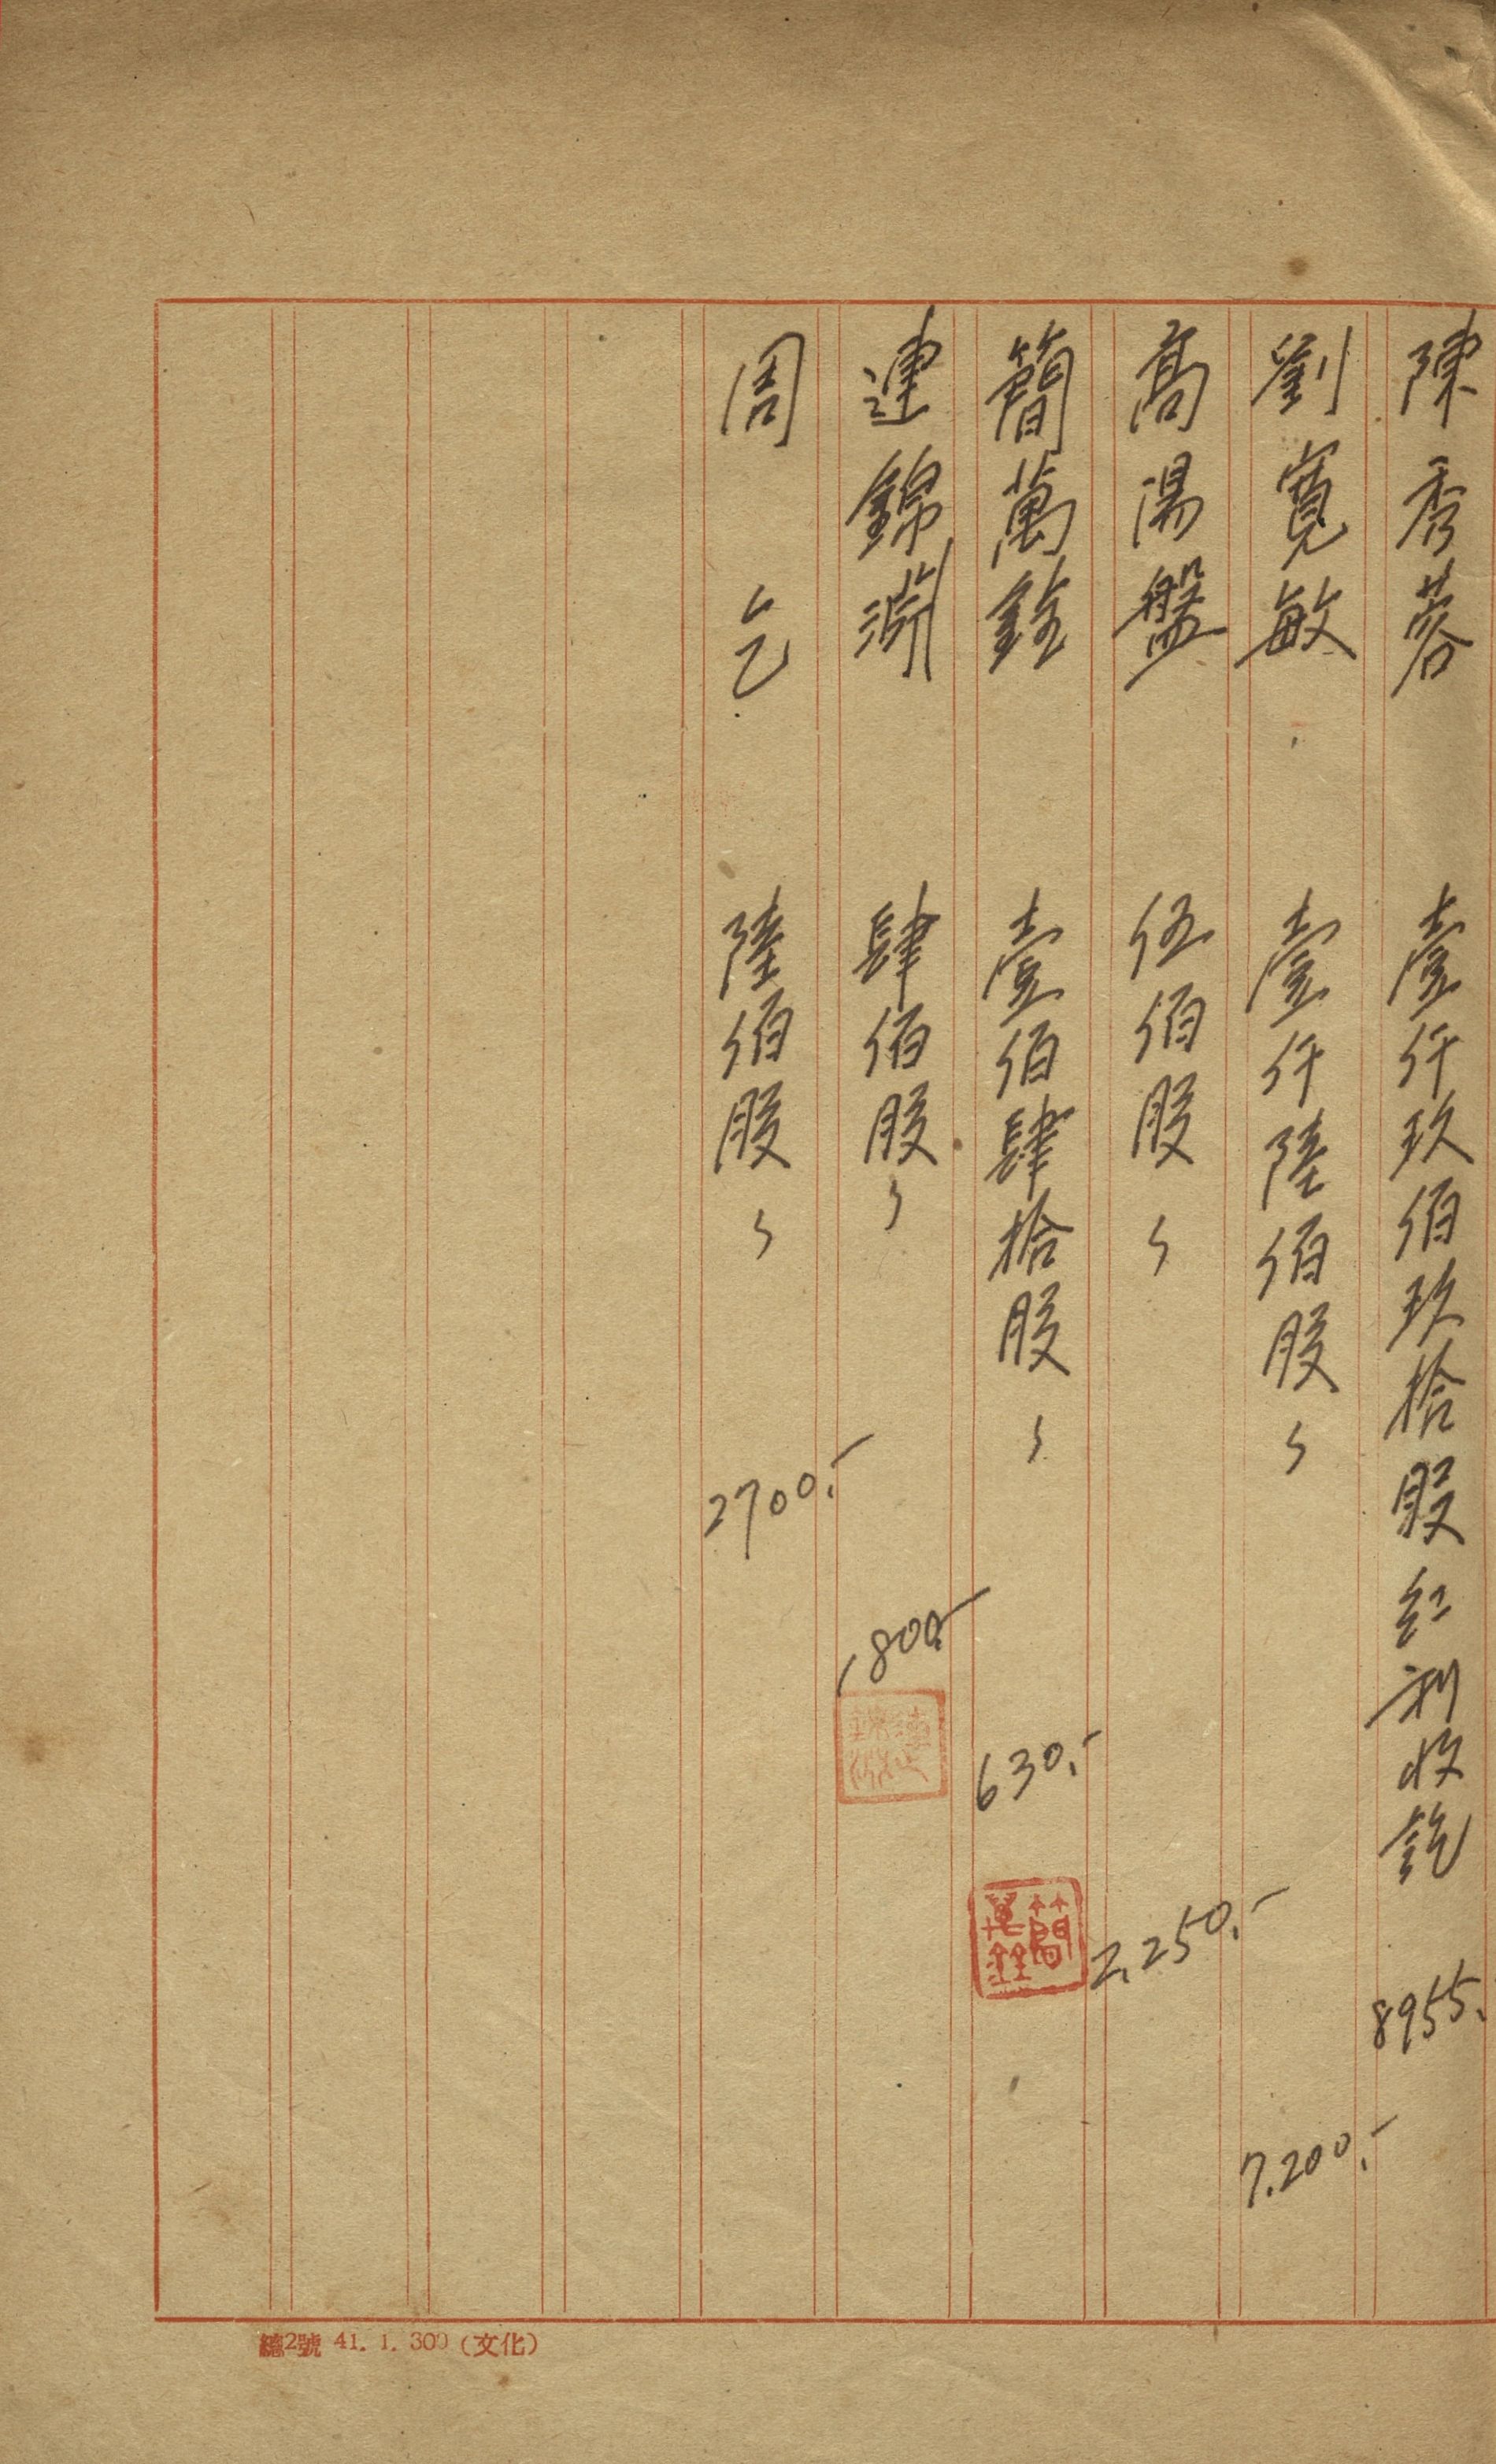 陳秀蓉 壹仟玖佰玖拾股紅利收訖 8955.
劉寬敏 壹仟陸佰股〃 7.200.-
高湯盤 伍佰股〃 2,250.-
簡萬銓 壹佰肆拾股〃 630.-
簡萬銓
連錦淵 肆佰股〃 1,800.-
周乞 陸佰股〃 2700.-
總2號 41. 1. 300 (文化)